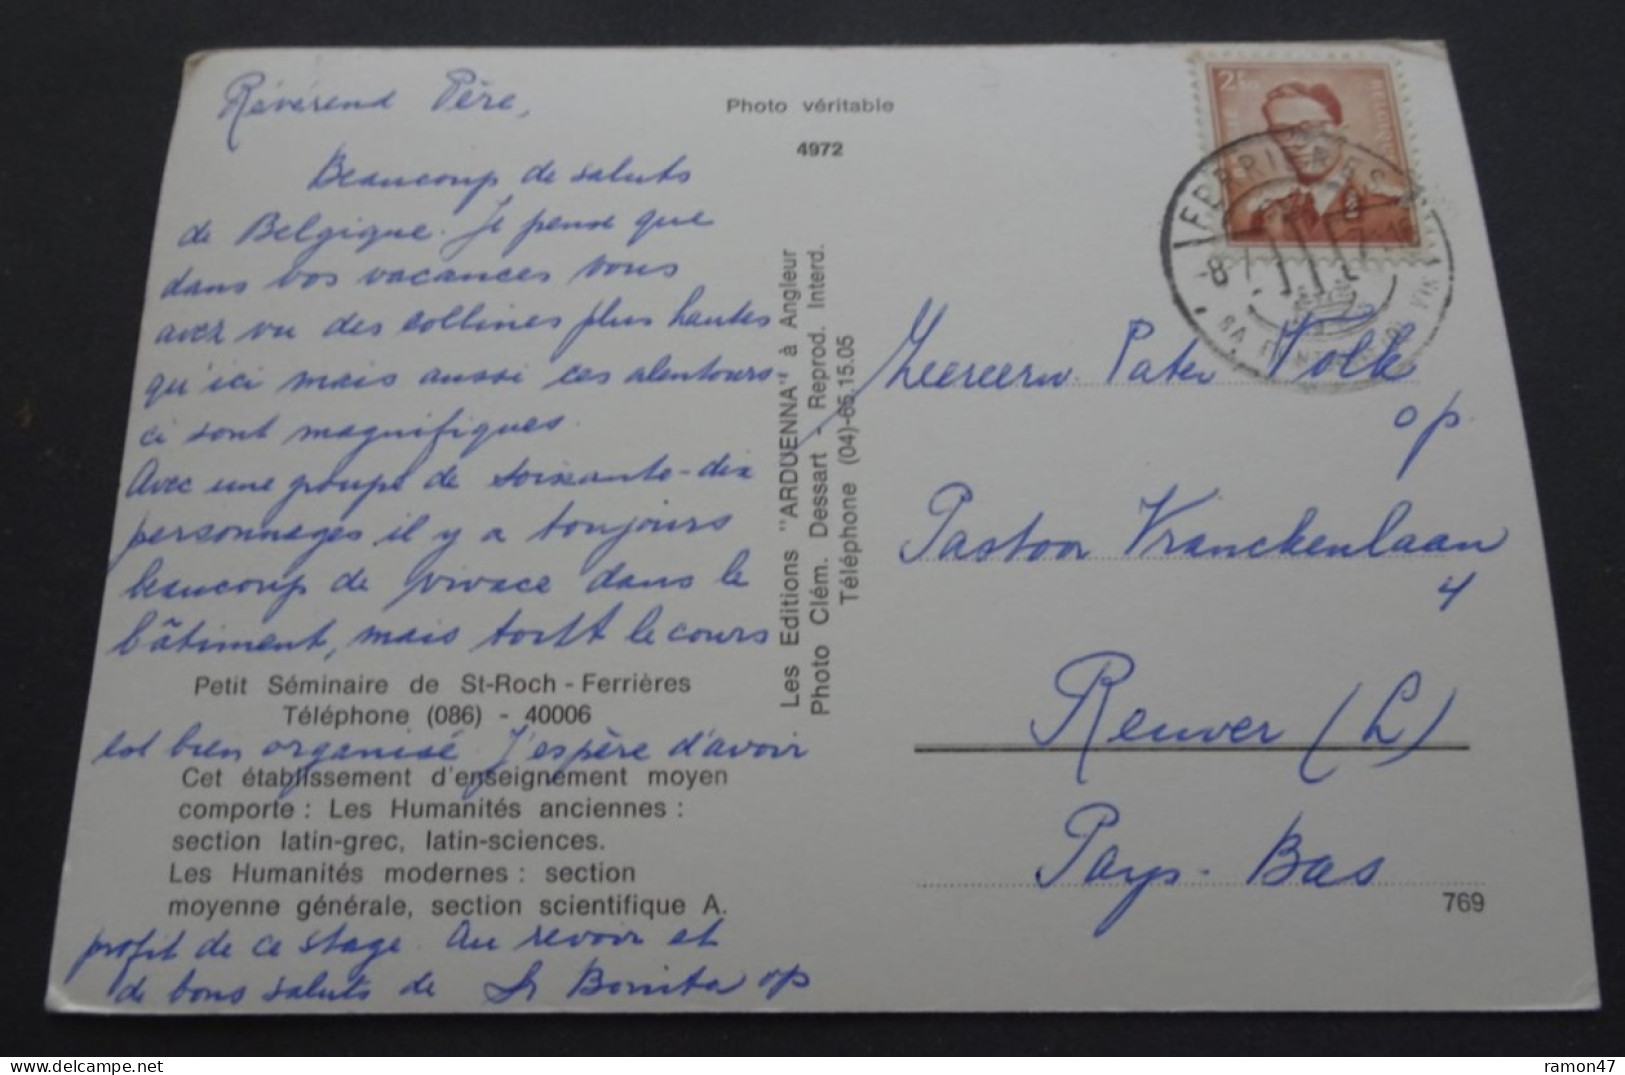 Révérend Père,
Beaucoup de saluts
de Belgique. Je pense que
dans vos vacances vous
avez vu des collines plus hautes
qu'ici mais aussi ces alentours
ci sont magnifiques.
Avec une groupe de soixante-dix
personnages il y a toujours
beaucoup de vivace dans le
bâtiment, mais le cours
Petit Séminaire de St-Roch - Ferrières
Téléphone (086) - 40006
est bien organisé J'espère d'avoir
Cet établissement d'enseignement moyen
comporte : Les Humanités anciennes :
section latin-grec, latin-sciences.
Les Humanités modernes : section
moyenne générale, section scientifique A.
profit de ce stage. Au revoir et
de bons saluts de Sr Bonita op
Photo véritable
4972
Les Editions "ARDUENNA" à Angleur
Photo Clém. Dessart - Reprod. Interd.
Téléphone (04)-65.15.05
2F50
FERRIERES
Pater Volk
op
Pastoor Vranckenlaan
4
Reuver (L)
Pays-Bas
769
ramon47